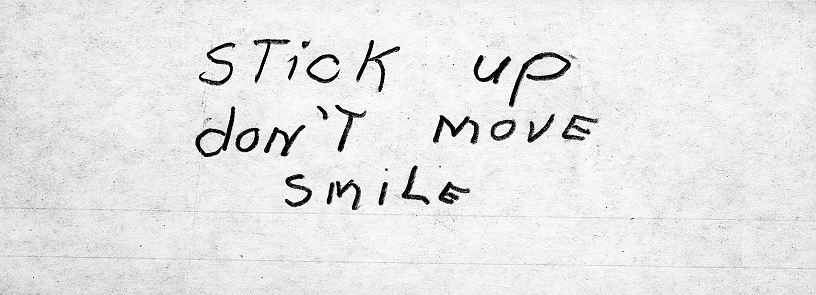 STicK up
don't MOVE
SMiLE